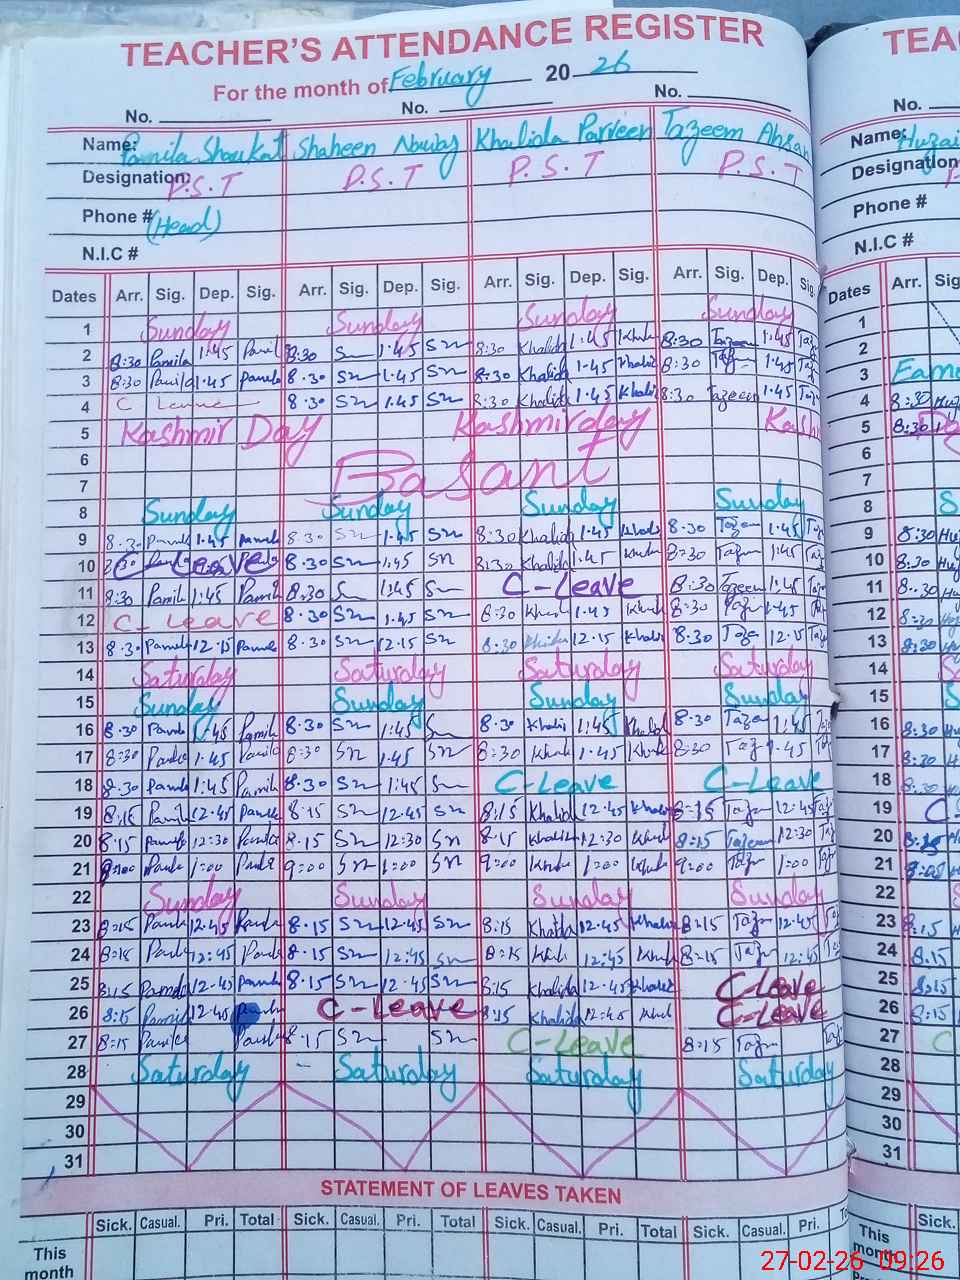 TEACHER'S ATTENDANCE REGISTER TEA
For the month of February 20 26
No. No. No. No.
Name: Pamila Shoukat Shaheen Nawaz Khalida Parveen Tazeem Ahsan Name:
Designation: P.S.T P.S.T P.S.T P.S.T Designation
Phone # (Head) Phone #
N.I.C # N.I.C #
Dates Arr. Sig. Dep. Sig. Arr. Sig. Dep. Sig. Arr. Sig. Dep. Sig. Arr. Sig. Dep. Sig Dates Arr. Sig.
1 Sunday Sunday Sunday Sunday 1
2 8:30 Pamila 1:45 Pamil 8:30 Sn 1.45 Sn 8:30 Khalida 1:45 Khali 8:30 Tazeem 1:45 Taz 2
3 8:30 Pamila 1.45 Pamila 8.30 Sn 1.45 Sn 8:30 Khalida 1.45 Khalid 8:30 Taz 1.45 Taz 3
4 C Leave 8.30 Sn 1.45 Sn 8:30 Khalida 1.45 Khalid 8:30 Tazeem 1.45 Taz 4 8:30
5 Kashmir Day Kashmir day Kash 5 8:30
6 6
7 Basant 7
8 Sunday Sunday Sunday Sunday 8 S
9 8.30 Pamil 1.45 Pamila 8.30 Sn 1.45 Sn 8:30 Khalida 1.45 Khali 8.30 Tazm 1.45 Taz 9 8:30
10 8:30 C-Leave 8.30 Sn 1:45 Sn 8:30 Khalida 1.45 Khali 8:30 Tazm 1:45 Taz 10 8:30
11 8:30 Pamil 1:45 Pamil 8:30 Sn 1:45 Sn C-Leave 8:30 Tazeem 1:45 Taz 11 8:30
12 C-Leave 8.30 Sn 1.45 Sn 8:30 Khali 1.45 Khali 8:30 Taz 1.45 Taz 12 8:30
13 8.30 Pamil 12.15 Pamila 8.30 Sn 12.15 Sn 8:30 Khali 12.15 Khali 8.30 Taz 12.15 Taz 13 8:30
14 Saturday Saturday Saturday Saturday 14
15 Sunday Sunday Sunday Sunday 15
16 8.30 Pamil 1.45 Pamila 8.30 Sn 1:45 Sn 8.30 Khali 1:45 Khalid 8.30 Tazm 1:45 Taz 16 8:30
17 8:30 Pamila 1.45 Pamila 8:30 Sn 1.45 Sn 8:30 Khali 1.45 Khali 8:30 Taz 1.45 Taz 17 8:30
18 8.30 Pamila 1:45 Pamila 8.30 Sn 1:45 Sn C-Leave C-Leave 18 8.30
19 8:15 Pamil 12.45 Pamila 8.15 Sn 12.45 Sn 8:15 Khalid 12.45 Khali 8:15 Tazm 12.45 Taz 19 C
20 8:15 Pamila 12:30 Pamila 8.15 Sn 12:30 Sn 8:15 Khalida 12:30 Khali 8:15 Tazeem 12:30 Ta 20 8:15
21 9:00 Pamila 1:00 Pamila 9:00 Sn 1:00 Sn 9:00 Khali 1:00 Khali 9:00 Tazm 1:00 Taz 21
22 Sunday Sunday Sunday Sunday 22
23 8:15 Pamil 12.45 Pamila 8.15 Sn 12.45 Sn 8:15 Khalida 12.45 Khalida 8:15 Tazm 12.45 Taz 23 8.15
24 8:15 Pamila 12:45 Pamila 8.15 Sn 12:45 Sn 8:15 Khali 12:45 Khali 8:15 Tazm 12:45 Ta 24 8.15
25 8:15 Pamila 12.45 Pamila 8.15 Sn 12.45 Sn 8:15 Khalida 12.45 Khalid C-Leave 25 8:15
26 8:15 Pamila 12.45 C-Leave 8:15 Khalida 12:45 Khali C-Leave 26 8:15
27 8:15 Pamila Pamila 8.15 Sn Sn C-Leave 8:15 Tazm Taz 27 C
28 Saturday Saturday Saturday Saturday 28
29 29
30 30
31 31
STATEMENT OF LEAVES TAKEN
Sick. Casual. Pri. Total Sick. Casual. Pri. Total Sick. Casual. Pri. Total Sick. Casual. Pri. Sick.
This month This month
27-02-26 09:26